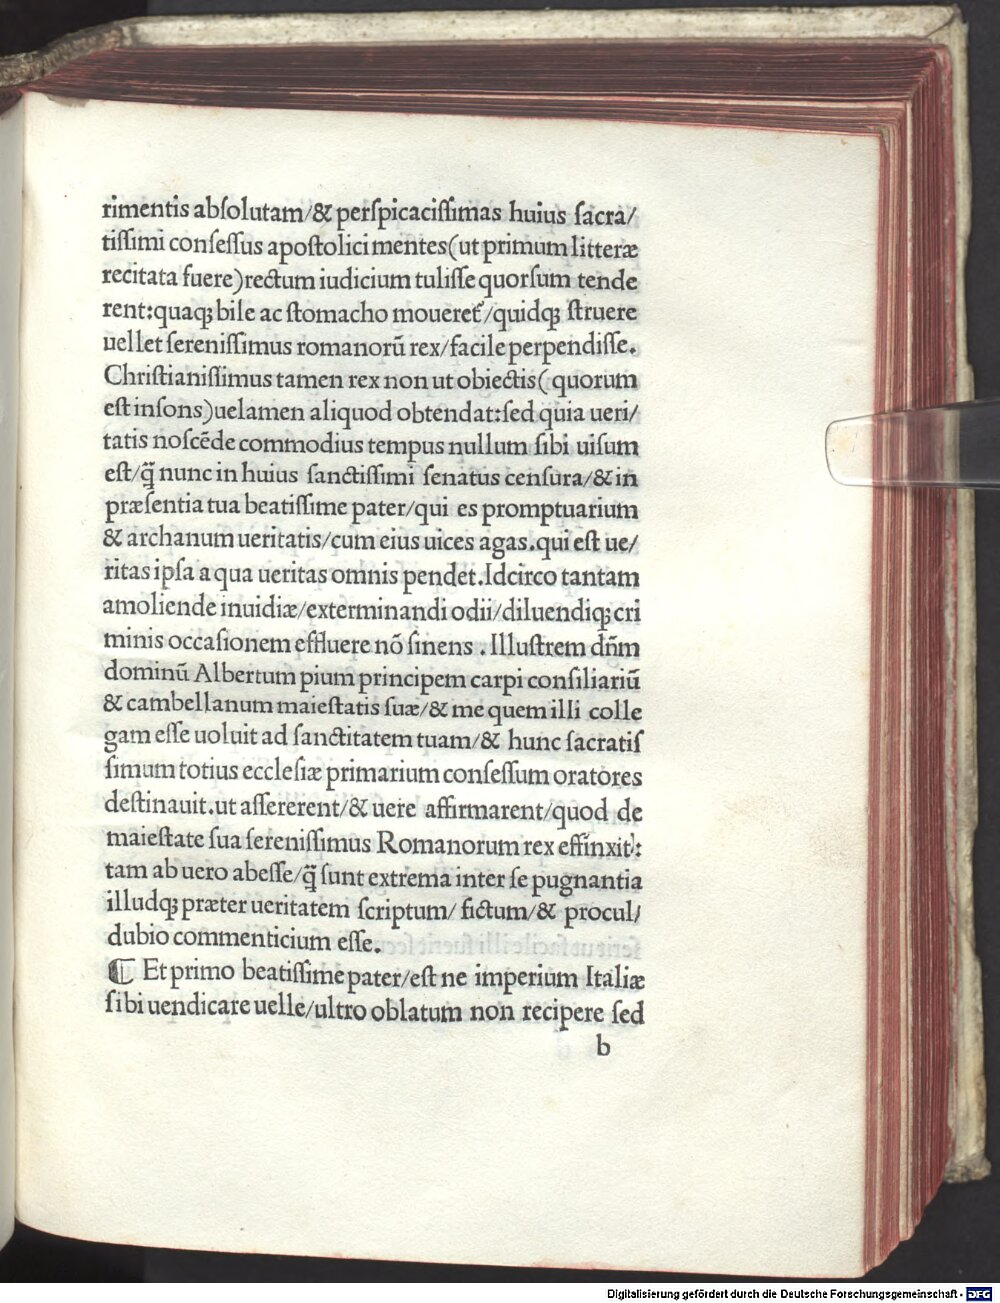 rimentis abſolutam/& perſpicaciſſimas huius ſacra/
tiſſimi conſeſſus apoſtolici mentes(ut primum litteræ
recitata fuere)rectum iudicium tuliſſe quorſum tende
rent:quaqꝫ bile ac ſtomacho moueret᷑/quidqꝫ ſtruere
uellet ſereniſſimus romanorū rex/facile perpendiſſe.
Chriſtianiſſimus tamen rex non ut obiectis(quorum
eſt inſons)uelamen aliquod obtendat:ſed quia ueri/
tatis noſcēde commodius tempus nullum ſibi uiſum
eſt/q̃ nunc in huius ſanctiſſimi ſenatus cenſura/& in
præſentia tua beatiſſime pater/qui es promptuarium
& archanum ueritatis/cum eius uices agas.qui eſt ue/
ritas ipſa a qua ueritas omnis pendet.Idcirco tantam
amoliende inuidiæ/exterminandi odii/diluendiqꝫ cri
minis occaſionem effluere nō ſinens . Illuſtrem dn̄m
dominū Albertum pium principem carpi conſiliariū
& cambellanum maieſtatis ſuæ/& me quem illi colle
gam eſſe uoluit ad ſanctitatem tuam/& hunc ſacratiſ
ſimum totius eccleſiæ primarium conſeſſum oratores
deſtinauit.ut aſſererent/& uere affirmarent/quod de
maieſtate ſua ſereniſſimus Romanorum rex effinxit:
tam ab uero abeſſe/q̃ ſunt extrema inter ſe pugnantia
illudqꝫ præter ueritatem ſcriptum/ fictum/& procul/
dubio commenticium eſſe.
⸿ Et primo beatiſſime pater/eſt ne imperium Italiæ
ſibi uendicare uelle/ultro oblatum non recipere ſed
b
Digitalisierung gefördert durch die Deutsche Forschungsgemeinschaft - DFG